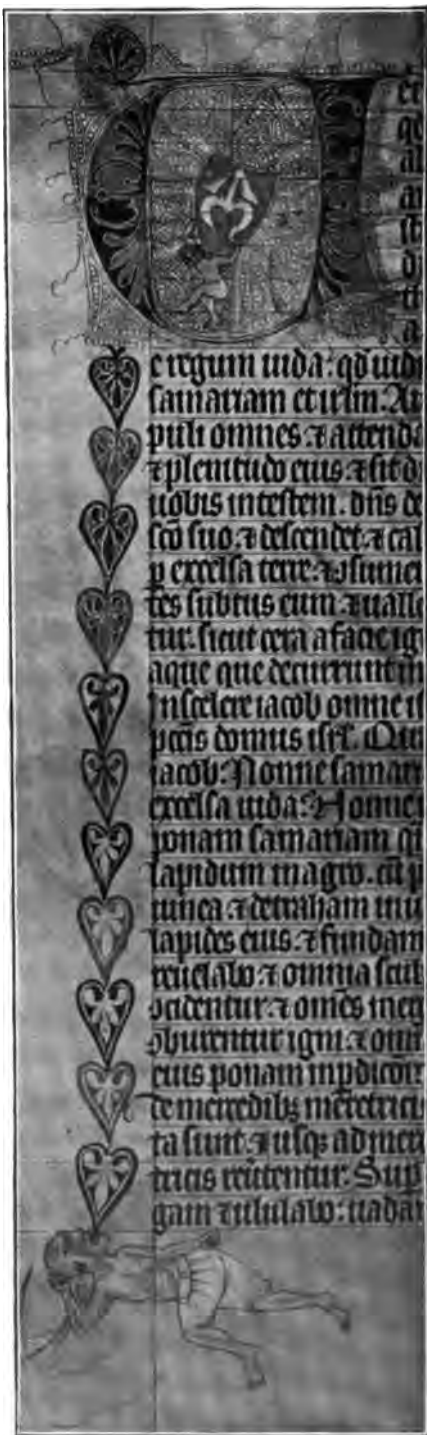 et
qd
e regum iuda: qd uidi
samariam et irlm. Au
puli omnes ⁊ attenda
⁊ plenitudo eius. ⁊ sit d
uobis in testem. dns de
sco suo. ⁊ descendet. ⁊ cal
p excelsa terre. ⁊ ꝯsumē
tes subtus eum. ⁊ ualle
tur. sicut cera a facie ig
aque que decurrunt in
In scelere iacob omne is
pctis domus isrl. Qu
iacob: Nonne samari
excelsa iuda: Nonne
ponam samariam q
lapidum in agro. cū p
uinea. ⁊ detraham in
lapides eius. ⁊ fundam
reuelabo. ⁊ omnia scul
ꝯcidentur. ⁊ omēs merc
ꝯburentur igni. ⁊ omi
eius ponam in pdicōē
de mercedibꝫ meretrici
ta sunt. ⁊ usqꝫ ad merc
tricis reuertentur. Sup
gam ⁊ ululabo: uadā